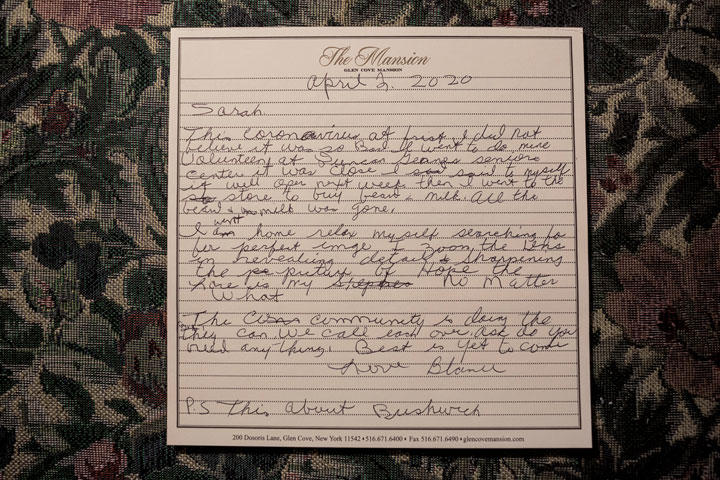 The Mansion
GLEN COVE MANSION
April 2. 2020
Sarah
This coronavirus at first I did not
believe it was so Bad If went to do mine
Volunteer at Duncan Genns senior
center it was close I said to myself
it will open next week then I went to the
store to buy bead & milk. All the
bead & milk was gone.
I went home relax my self searching fo
for perfect imge I zoon the lens
in revealing detail & sharpening
the picture of Hope the
Lore is my No Matter
What
The community is doing the
they can. We call each over, ask do you
need anything. Best is yet to come
Love Blanca
P.S This About Bushwich
200 Dosoris Lane, Glen Cove, New York 11542 • 516.671.6400 • Fax 516.671.6490 • glencovemansion.com